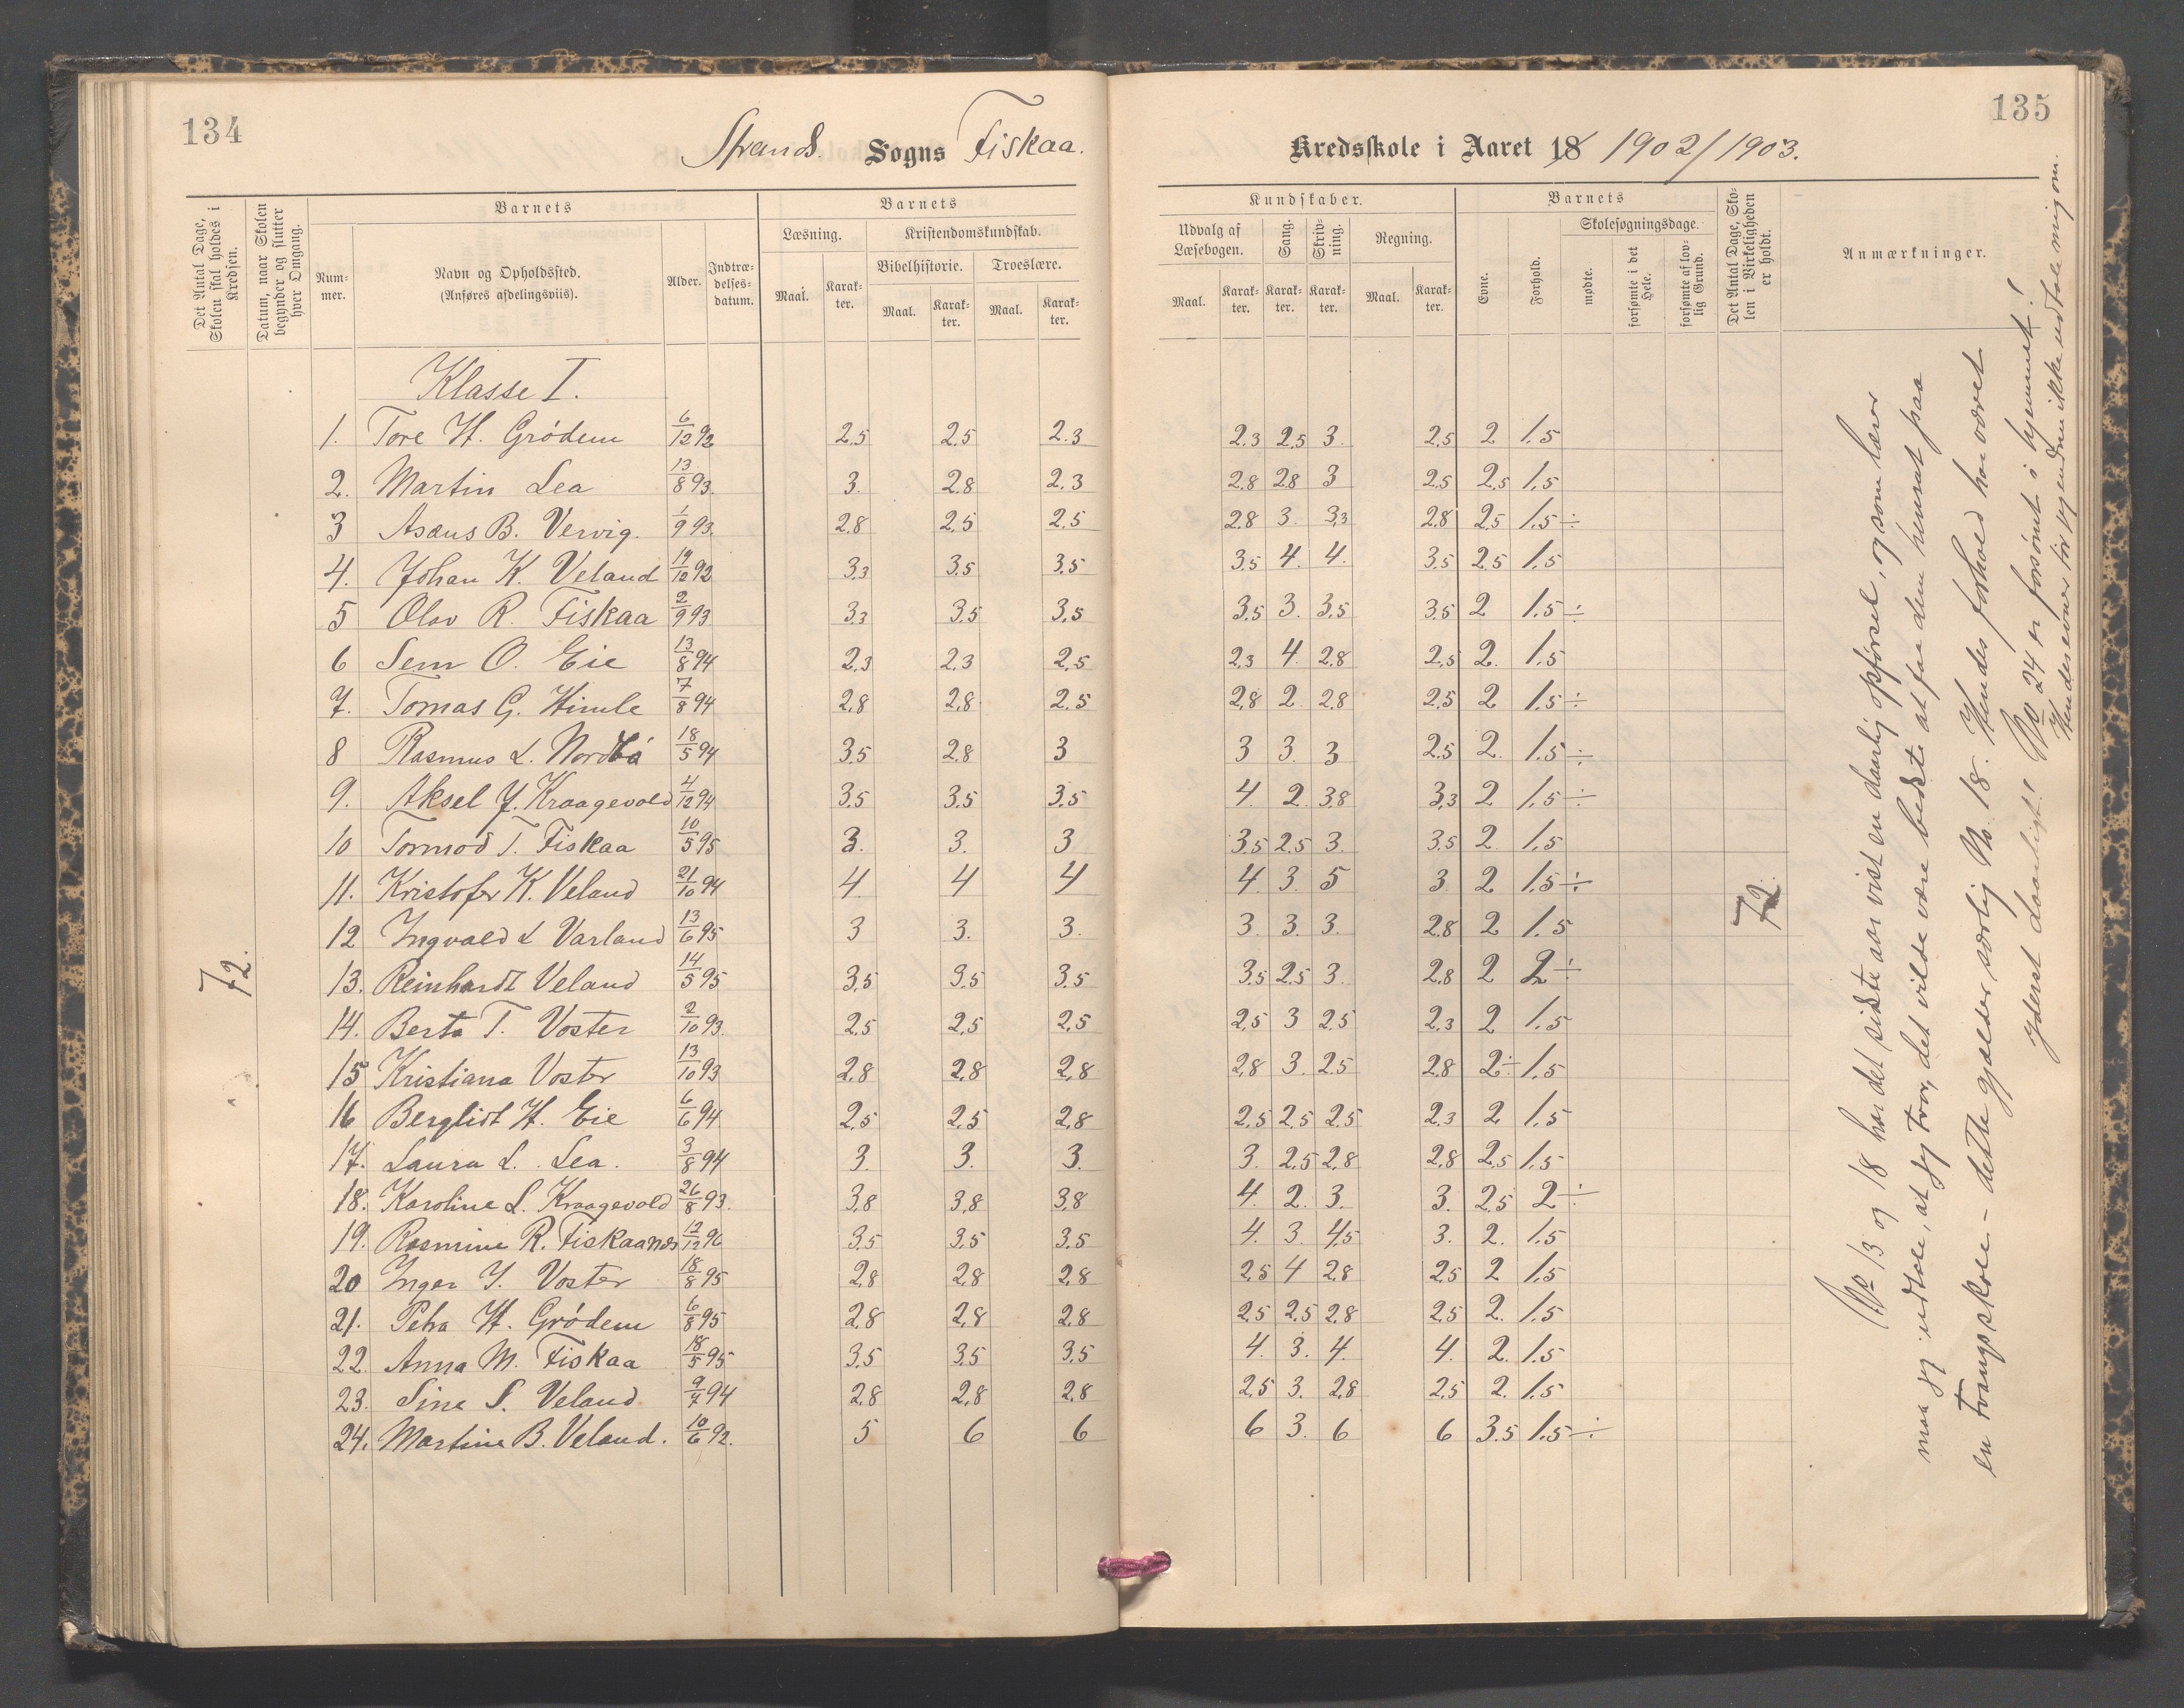 134
Strands Sogns Fiskaa.
Det Antal Dage, Skolen skal holdes i Kredsen.
Datum, naar Skolen begynder og slutter hver Omgang.
Barnets
Nummer.
Navn og Opholdssted.
(Anføres afdelingsviis).
Alder.
Indtrædelsesdatum.
Barnets
Læsning.
Kristendomskundskab.
Bibelhistorie.
Troeslære.
Maal. Karakter. Maal. Karakter. Maal. Karakter.
Klasse I.
1. Tore H. Grödem 6/12 92 2.5 2.5 2.3
2. Martin Lea 13/8 93. 3. 2.8 2.3
3 Asæus B. Vervig. 1/9 93. 2.8 2.5 2.5
4. Johan K. Veland 19/12 92 3.3 3.5 3.5
5 Olav R. Fiskaa 2/9 93 3.3 3.5 3.5
6 Sem O. Eie 13/8 94 2.3 2.3 2.5
7. Tomas G. Himle 7/8 94 2.8 2.8 2.5
8 Rasmus L. Nordbö 18/5 94 3.5 2.8 3
9. Aksel J. Kraagevold 4/12 94 3.5 3.5 3.5
10 Tormod T. Fiskaa 10/5 95 3. 3. 3
11. Kristofer K. Veland 21/10 94 4 4 4
12 Ingvald L Varland 13/6 95 3 3. 3.
72.
13. Reinhardt Veland 14/5 95 3.5 3.5 3.5
14. Berta T. Voster 2/10 93. 2.5 2.5 2.5
15 Kristiana Voster 13/10 93 2.8 2.8 2.8
16 Berglidt H. Eie 6/6 94 2.5 2.5 2.8
17. Laura L. Lea. 3/8 94 3. 3. 3.
18. Karoline L. Kraagevold 26/8 93. 3.8 3.8 3.8
19. Rasmine R. Fiskaanes 12/12 96 3.5 3.5 3.5
20 Inger J. Voster 18/8 95 2.8 2.8 2.8
21. Petra H. Grödem 6/8 95 2.8 2.8 2.8
22. Anna M. Fiskaa 18/5 95 3.5 3.5 3.5
23. Sina S. Veland 9/7 94 2.8 2.8 2.8
24. Martine B. Veland. 10/6 92. 5 6 6
135
Kredsskole i Aaret 18 1902/1903.
Kundskaber.
Udvalg af Læsebogen.
Sang.
Skrivning.
Regning.
Maal. Karakter. Karakter. Karakter. Maal. Karakter.
Barnets
Evne.
Forhold.
Skolesøgningsdage.
mødte.
forsømte i det Hele.
forsømte af lovlig Grund.
Det Antal Dage, Skolen i Virkeligheden er holdt.
Anmærkninger.
2.3 2.5 3. 2.5 2 1.5
2.8 2.8 3 2.5 2.5 1.5
2.8 3. 3.3 2.8 2.5 1.5 ÷
3.5 4. 4. 3.5 2.5 1.5
3.5 3. 3.5 3.5 2 1.5 ÷
2.3 4. 2.8 2.5 2. 1.5
2.8 2 2.8 2.5 2 1.5 ÷
3 3. 3 2.5 2. 1.5 ÷
4. 2. 3.8 3.3 2 1.5 ÷
3.5 2.5 3. 3.5 2 1.5
4. 3. 5 3. 2 1.5 ÷
3. 3. 3. 2.8 2 1.5
72.
3.5 2.5 3. 2.8 2 2 ÷
2.5 3 2.5 2.3 2 1.5
2.8 3. 2.5 2.8 2 ÷ 1.5
2.5 2.5 2.5 2.3 2 1.5
3. 2.5 2.8 2.8 2.5 1.5
4. 2. 3. 3. 2.5 2 ÷
4. 3. 4.5 3. 2. 1.5
2.5 4 2.8 2.5 2 1.5
2.5 2.5 2.8 2.5 2. 1.5
4. 3. 4. 4. 2. 1.5
2.5 3. 2.8 2.5 2. 1.5
6 3. 6 6 3.5 1.5 ÷
No 13 og 18 har det sidste aar vist en daarlig opförsel, og som lærer
maa jeg udtale, at jeg tror, det vilde være bedst at faa dem henvist paa
en tvangsskole – dette gjælder særlig No. 18. Hendes forhold har været
yderst daarligt! No 24 er forsömt i hjemmet!
Hendes evner tör jeg endnu ikke udtale mig om.